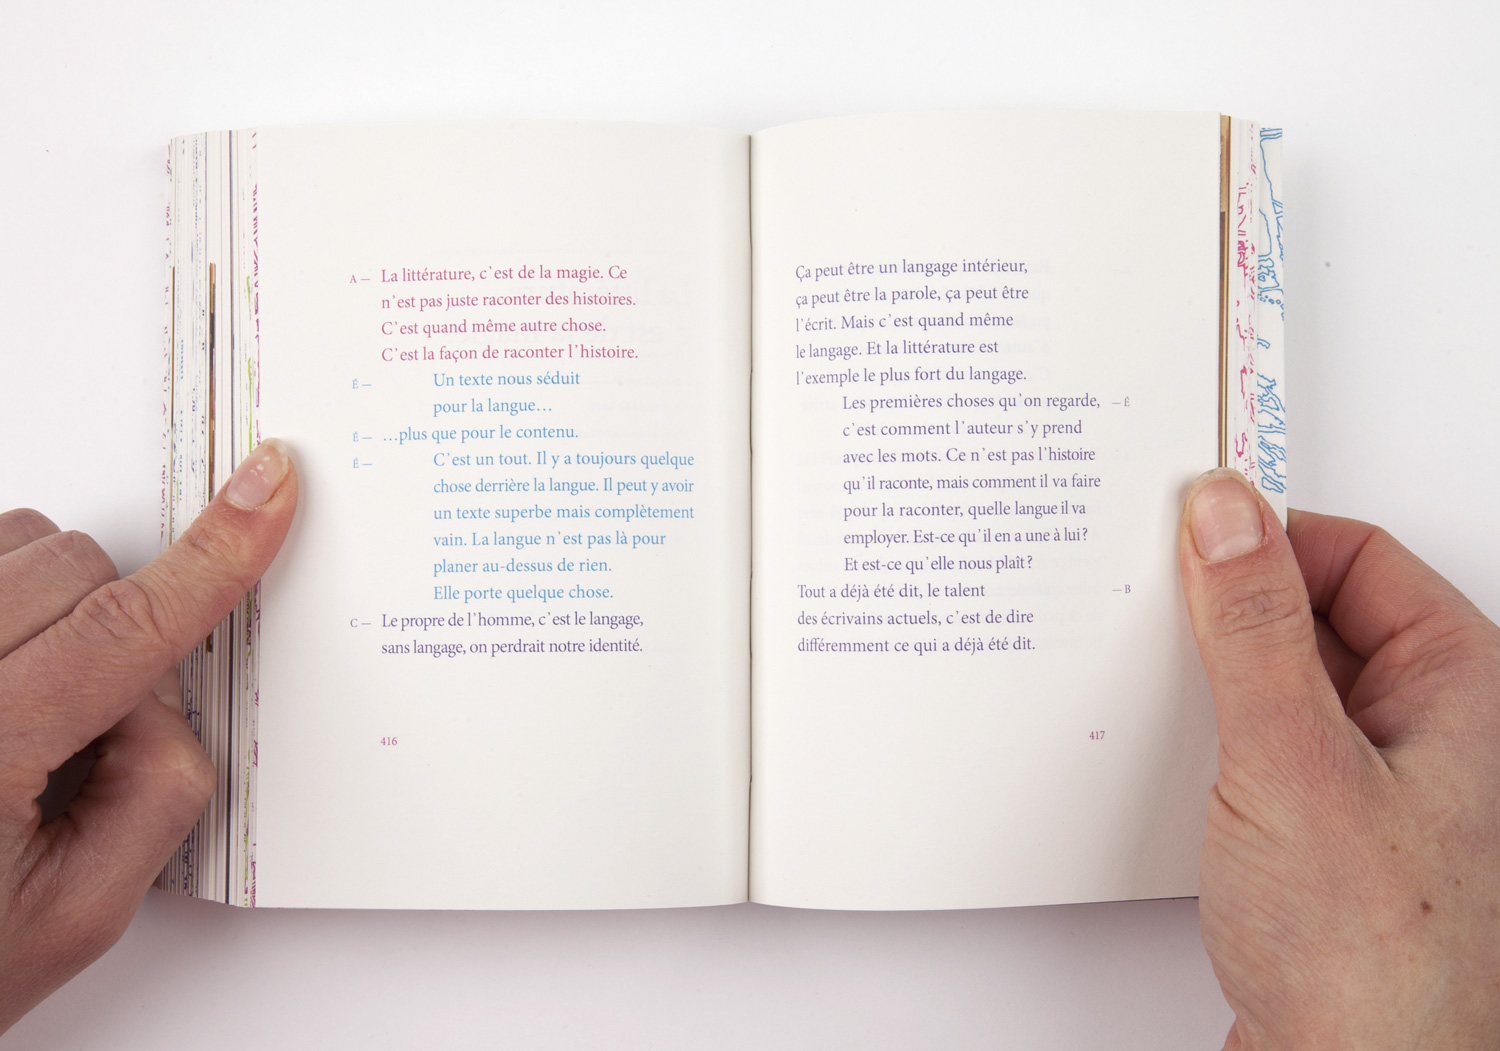 A — La littérature, c'est de la magie. Ce
n'est pas juste raconter des histoires.
C'est quand même autre chose.
C'est la façon de raconter l'histoire.
É — Un texte nous séduit
pour la langue…
É — …plus que pour le contenu.
É — C'est un tout. Il y a toujours quelque
chose derrière la langue. Il peut y avoir
un texte superbe mais complètement
vain. La langue n'est pas là pour
planer au-dessus de rien.
Elle porte quelque chose.
C — Le propre de l'homme, c'est le langage,
sans langage, on perdrait notre identité.
416
Ça peut être un langage intérieur,
ça peut être la parole, ça peut être
l'écrit. Mais c'est quand même
le langage. Et la littérature est
l'exemple le plus fort du langage.
Les premières choses qu'on regarde, — É
c'est comment l'auteur s'y prend
avec les mots. Ce n'est pas l'histoire
qu'il raconte, mais comment il va faire
pour la raconter, quelle langue il va
employer. Est-ce qu'il en a une à lui ?
Et est-ce qu'elle nous plaît ?
Tout a déjà été dit, le talent — B
des écrivains actuels, c'est de dire
différemment ce qui a déjà été dit.
417